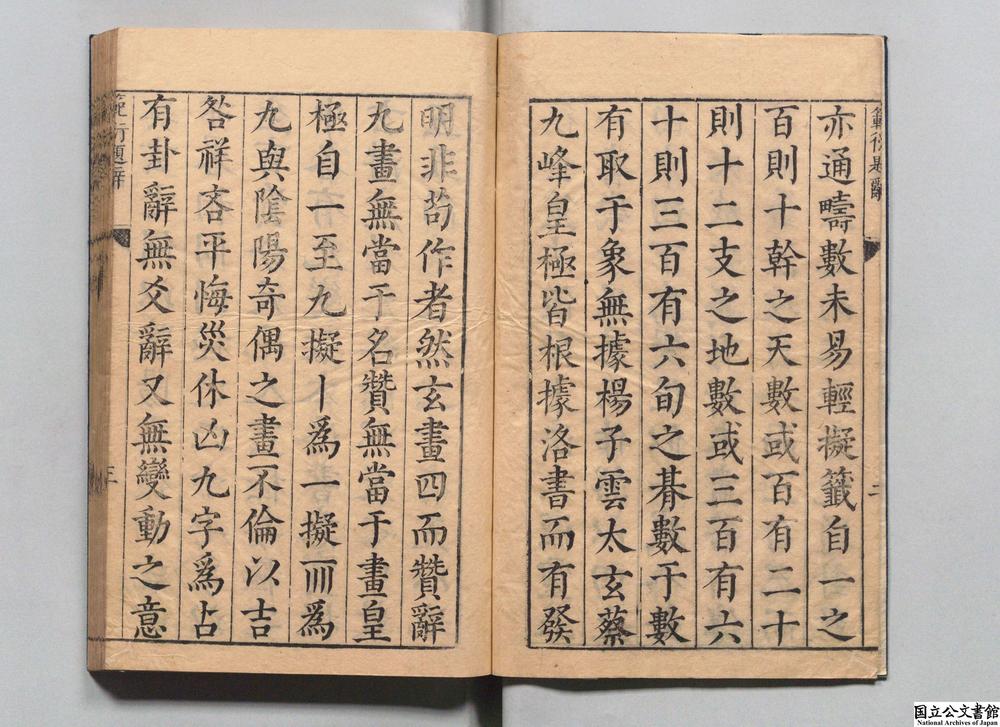 範衍題辭
二
亦通疇數未易輕擬籤自一之
百則十幹之天數或百有二十
則十二支之地數或三百有六
十則三百有六旬之朞數于數
有取于象無據楊子雲太玄蔡
九峰皇極皆根據洛書而有發
明非苟作者然玄畫四而贊辭
九畫無當于名贊無當于畫皇
極自一至九擬〡為一擬〣為
九與陰陽奇偶之畫不倫以吉
咎祥吝平悔災休凶九字為占
有卦辭無爻辭又無變動之意
範衍題辭
三
国立公文書館
National Archives of Japan